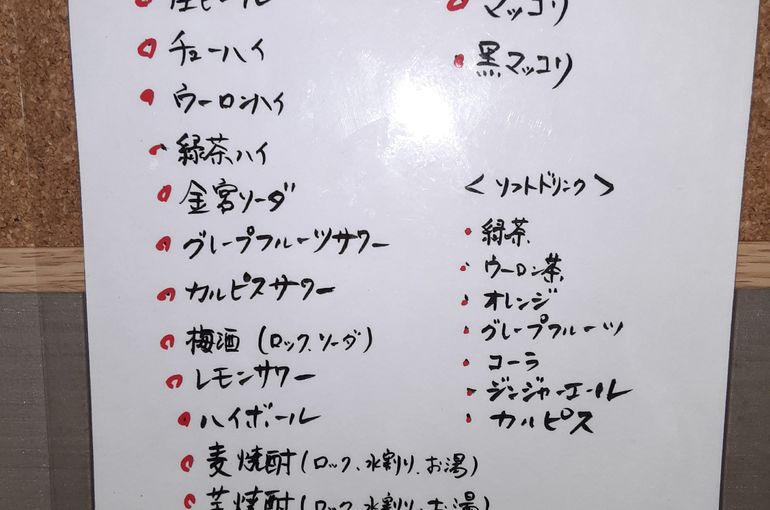 生ビール
チューハイ
ウーロンハイ
緑茶ハイ
金宮ソーダ
グレープフルーツサワー
カルピスサワー
梅酒(ロック、ソーダ)
レモンサワー
ハイボール
麦焼酎(ロック、水割り、お湯)
芋焼酎(ロック、水割り、お湯)
マッコリ
黒マッコリ
<ソフトドリンク>
緑茶
ウーロン茶
オレンジ
グレープフルーツ
コーラ
ジンジャーエール
カルピス